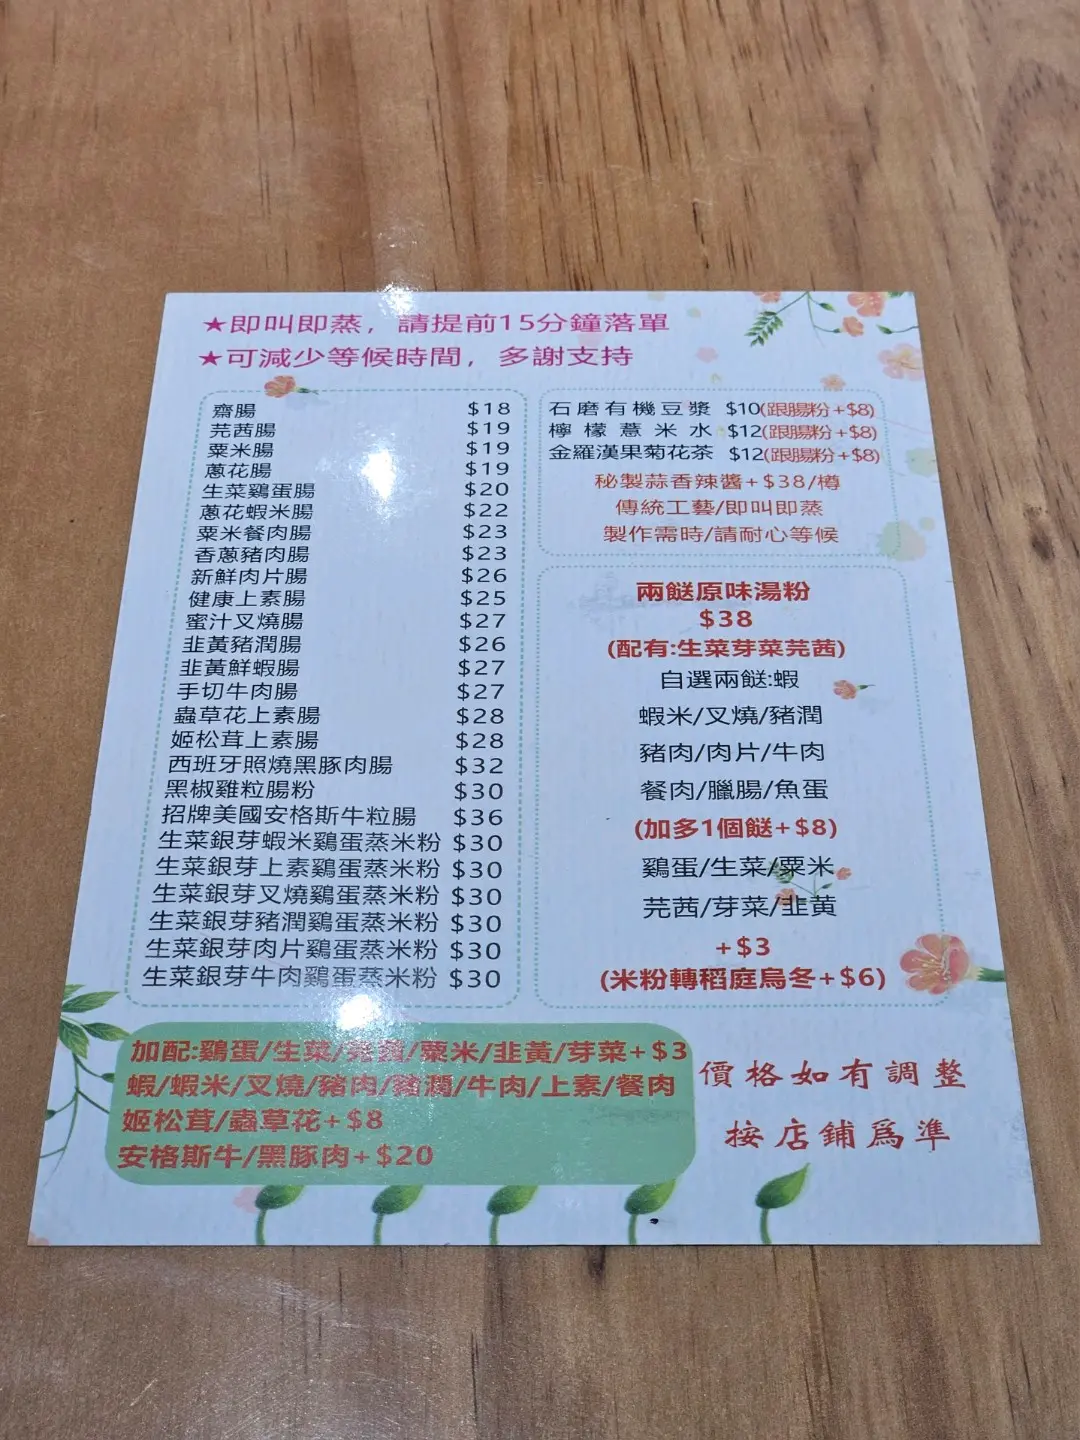 ★即叫即蒸，請提前15分鐘落單
★可減少等候時間，多謝支持
齋腸 $18
芫茜腸 $19
粟米腸 $19
蔥花腸 $19
生菜鷄蛋腸 $20
蔥花蝦米腸 $22
粟米餐肉腸 $23
香蔥豬肉腸 $23
新鮮肉片腸 $26
健康上素腸 $25
蜜汁叉燒腸 $27
韭黃豬潤腸 $26
韭黃鮮蝦腸 $27
手切牛肉腸 $27
蟲草花上素腸 $28
姬松茸上素腸 $28
西班牙照燒黑豚肉腸 $32
黑椒雞粒腸粉 $30
招牌美國安格斯牛粒腸 $36
生菜銀芽蝦米鷄蛋蒸米粉 $30
生菜銀芽上素鷄蛋蒸米粉 $30
生菜銀芽叉燒鷄蛋蒸米粉 $30
生菜銀芽豬潤鷄蛋蒸米粉 $30
生菜銀芽肉片鷄蛋蒸米粉 $30
生菜銀芽牛肉鷄蛋蒸米粉 $30
石磨有機豆漿 $10(跟腸粉+$8)
檸檬薏米水 $12(跟腸粉+$8)
金羅漢果菊花茶 $12(跟腸粉+$8)
秘製蒜香辣醬+$38/樽
傳統工藝/即叫即蒸
製作需時/請耐心等候
兩餸原味湯粉
$38
(配有:生菜芽菜芫茜)
自選兩餸:蝦
蝦米/叉燒/豬潤
豬肉/肉片/牛肉
餐肉/臘腸/魚蛋
(加多1個餸+$8)
鷄蛋/生菜/粟米
芫茜/芽菜/韭黄
+$3
(米粉轉稻庭烏冬+$6)
加配:鷄蛋/生菜/芫茜/粟米/韭黃/芽菜+$3
蝦/蝦米/叉燒/豬肉/豬潤/牛肉/上素/餐肉
姬松茸/蟲草花+$8
安格斯牛/黑豚肉+$20
價格如有調整
按店鋪爲準